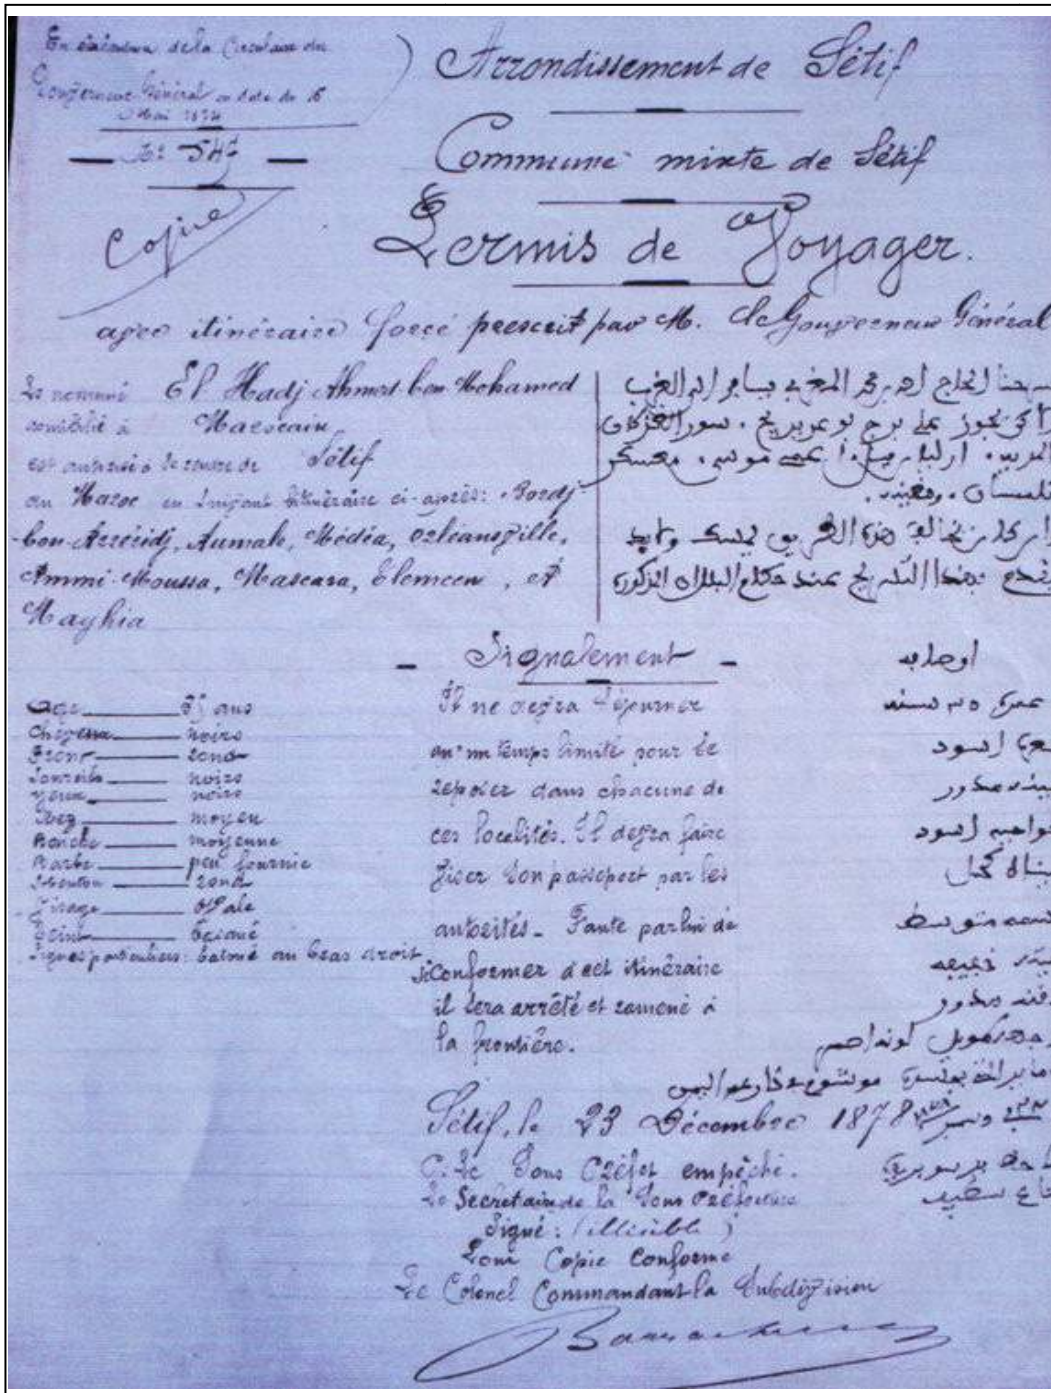 En exécution de la Circulaire du
Gouverneur Général en date du 16
Mai 1874
N° 547
Copie
Arrondissement de Sétif
Commune mixte de Sétif
Permis de Voyager.
avec itinéraire forcé prescrit par M. le Gouverneur Général
Le nommé El Hadj Ahmed ben Mohamed
domicilié à Marocain
est autorisé à se rendre de Sétif
au Maroc en suivant l'itinéraire ci-après: Bordj-
bou-Arréridj, Aumale, Médéa, Orléansville,
Ammi-Moussa, Mascara, Tlemcen, et
Maghia
سرحنا الحاج احمد بن محمد المغربي يسافر الى الغرب
يجوز على برج بوعريريج، سور الغزلان
المدية، عمي موسى، معسكر
تلمسان، ومغنية.
هذا الطريق
بهذا التسريح عند حكام البلدان المذكورة
Signalement
Age ans
Cheveux noirs
Front rond
Sourcils noirs
Yeux noirs
Nez moyen
Bouche moyenne
Barbe peu fournie
Menton rond
Visage ovale
Teint basané
Signes particuliers: tatoué au bras droit
Il ne devra séjourner
qu'un temps limité pour se
reposer dans chacune de
ces localités. Il devra faire
viser son passeport par les
autorités. Faute par lui de
se Conformer à cet itinéraire
il sera arrêté et ramené à
la frontière.
اوصافه
عمره سنة
اسود
مدور
اسود
كحل
متوسط
خفيفة
مدور
طويل لونه احمر
اليمين
Sétif, le 23 Décembre 1878
P. Le Sous Préfet empêché.
Le Secrétaire de la Sous Préfecture
Signé: (illisible)
Pour Copie Conforme
Le Colonel Commandant la Subdivision